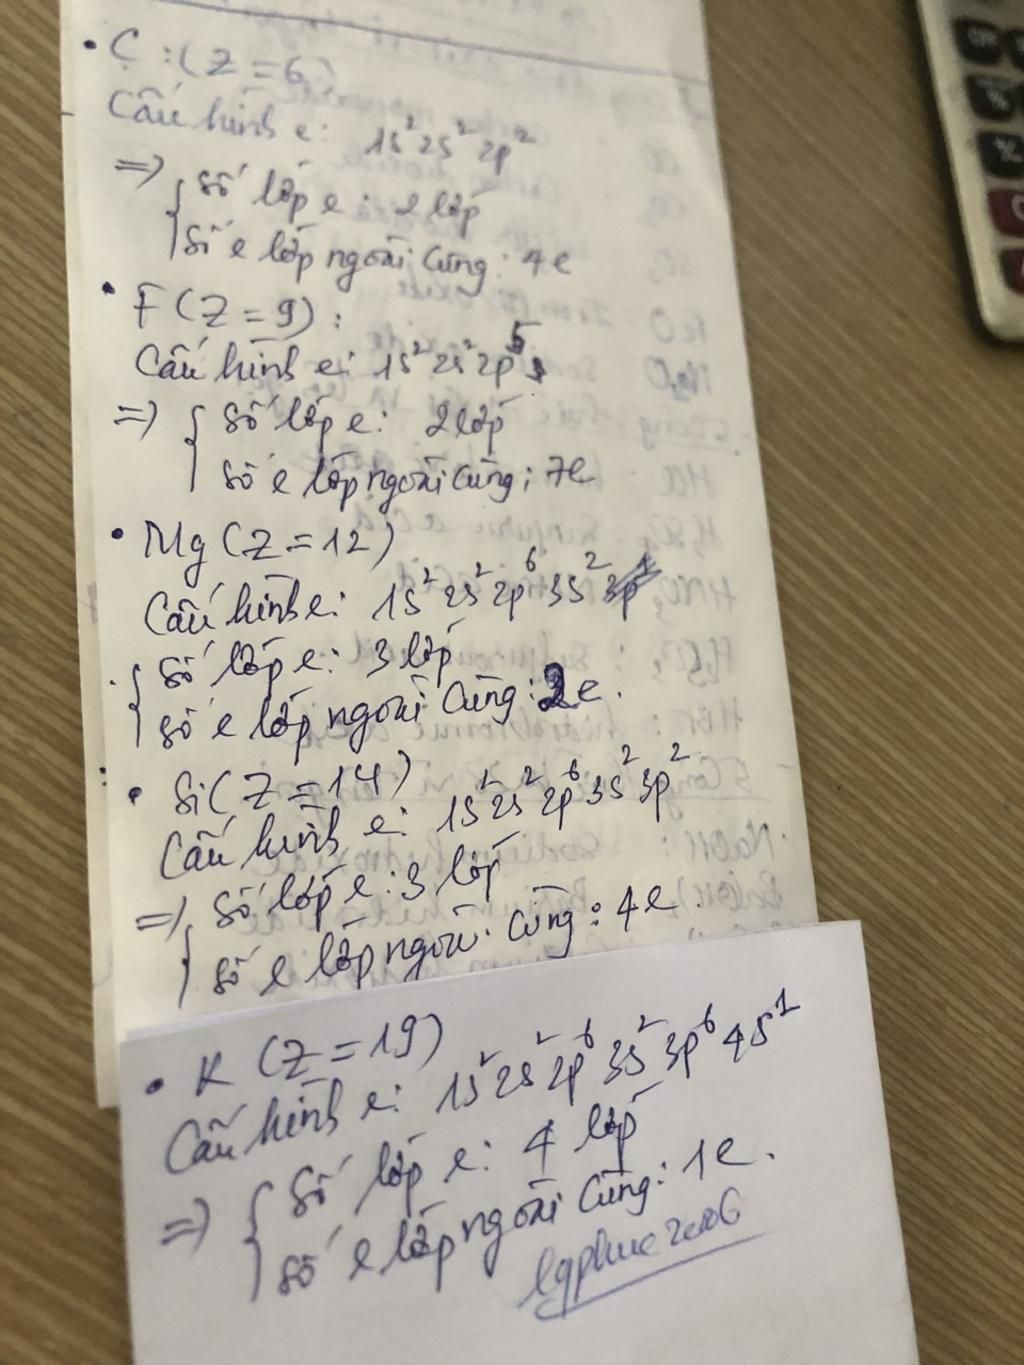 • C : (Z = 6)
Cấu hình e: 1s² 2s² 2p²
=> số lớp e : 2 lớp
số e lớp ngoài cùng : 4e
• F (Z = 9) :
Cấu hình e: 1s² 2s² 2p⁵
=> số lớp e: 2 lớp
số e lớp ngoài cùng: 7e
• Mg (Z = 12)
Cấu hình e: 1s² 2s² 2p⁶ 3s²
số lớp e: 3 lớp
số e lớp ngoài cùng: 2e.
• Si (Z = 14)
Cấu hình e: 1s² 2s² 2p⁶ 3s² 3p²
=> số lớp e: 3 lớp
số e lớp ngoài cùng: 4e.
• K (Z = 19)
Cấu hình e: 1s² 2s² 2p⁶ 3s² 3p⁶ 4s¹
=> số lớp e: 4 lớp
số e lớp ngoài cùng: 1e.